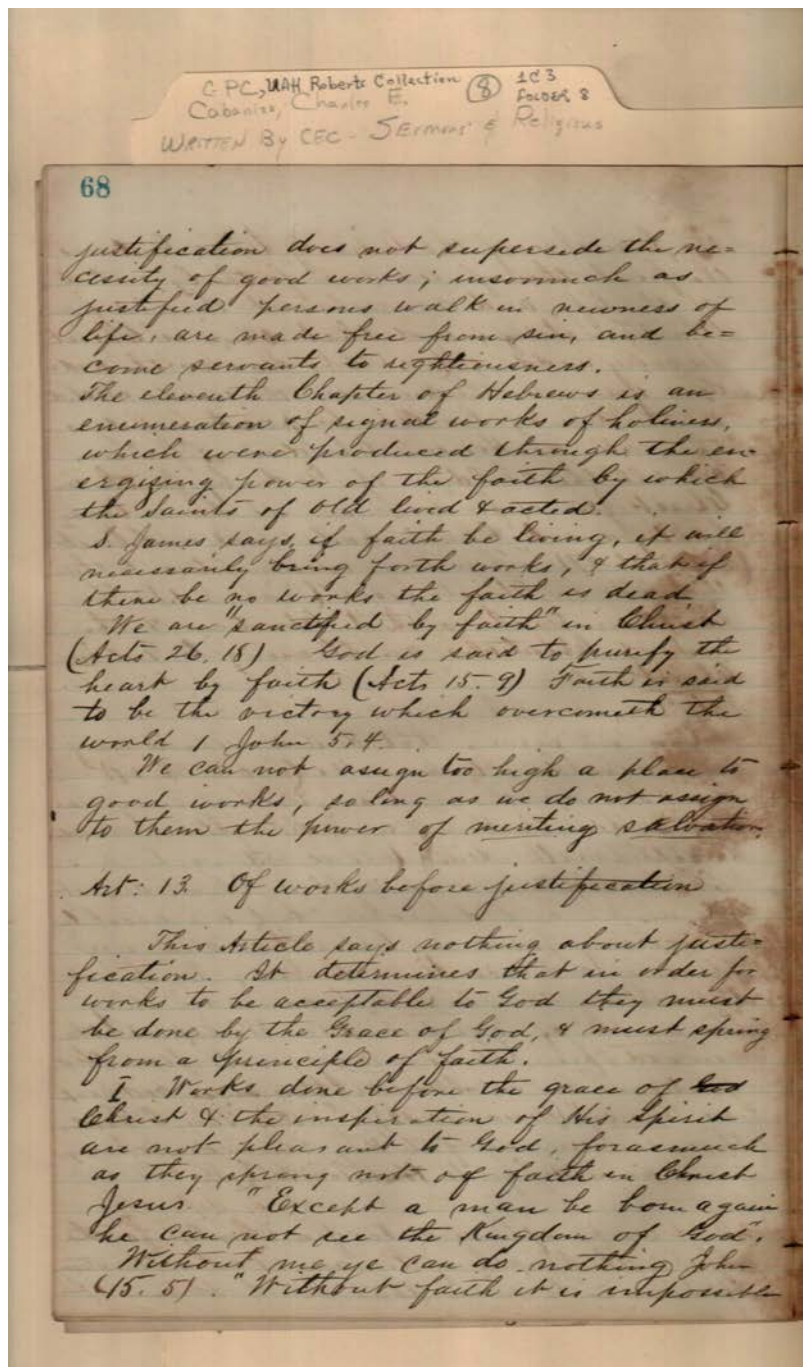 GPC, UAH Roberts Collection (8) 1C3
Cabaniss, Charles E. FOLDER 8
WRITTEN By CEC - SERMONS & Religious
68
justification does not supersede the ne=
cessity of good works; insomuch as
justified persons walk in newness of
life, are made free from sin, and be=
come servants to righteousness.
The eleventh Chapter of Hebrews is an
enumeration of signal works of holiness,
which were produced through the en-
ergising power of the faith by which
the Saints of old lived & acted.
S. James says, if faith be living, it will
necessarily bring forth works, & that if
there be no works the faith is dead
We are "sanctified by faith" in Christ
(Acts 26. 18) God is said to purify the
heart by faith (Acts 15. 9) Faith is said
to be the victory which overcometh the
world 1 John 5. 4.
We can not assign too high a place to
good works, so long as we do not assign
to them the power of meriting salvation.
Art: 13. Of works before justification
This Article says nothing about justi=
fication. It determines that in order for
works to be acceptable to God they must
be done by the Grace of God, & must spring
from a principle of faith.
I Works done before the grace of God
Christ & the inspiration of His Spirit
are not pleasant to God, forasmuch
as they sprong not of faith in Christ
Jesus. "Except a man be born again
he can not see the Kingdom of God".
Without me ye can do nothing John
(15. 5). "Without faith it is impossible